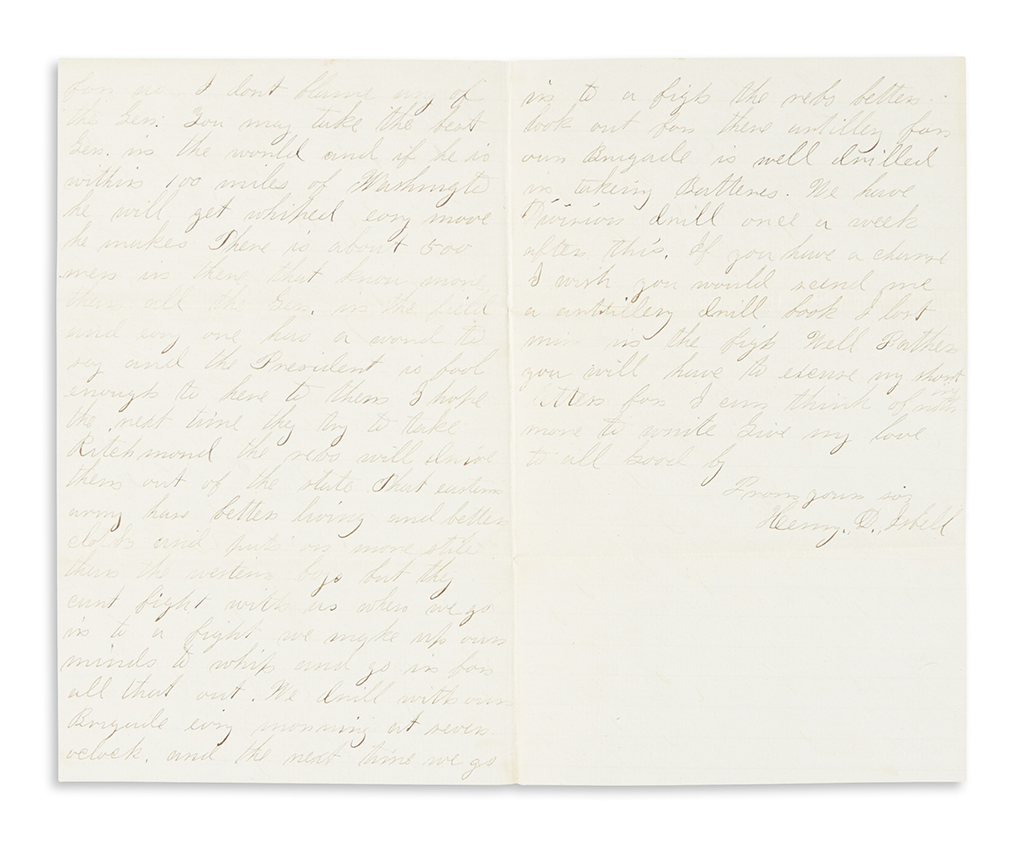 for us. I dont blame any of
the Gen. You may take the best
Gen. in the world and if he is
within 100 miles of Washingto
he will get whiped evry move
he makes There is about 500
men in there that know more
then all the Gen. in the field
and evry one has a word to
say and the President is fool
enough to here to them I hope
the next time they try to take
Ritchmond the rebs will drive
them out of the state. That eastern
army have better living and better
cloths and puts on more stile
then the western boys but they
cant fight with us when we go
in to a fight we make up our
minds to whip and go in for
all that out. We drill with our
Brigade evry morning at seven
oclock. and the next time we go
in to a figh the rebs better
look out for there artillery for
our Brigade is well drilled
in takeing Batteries. We have
Division drill once a week
after this. If you have a chance
I wish you would scend me
a artillery drill book I lost
mine in the figh Well Father
you will have to excuse my short
letters for I cant think of
more to write Give my love
to all Good by
From your son
Henry. D. Isbell